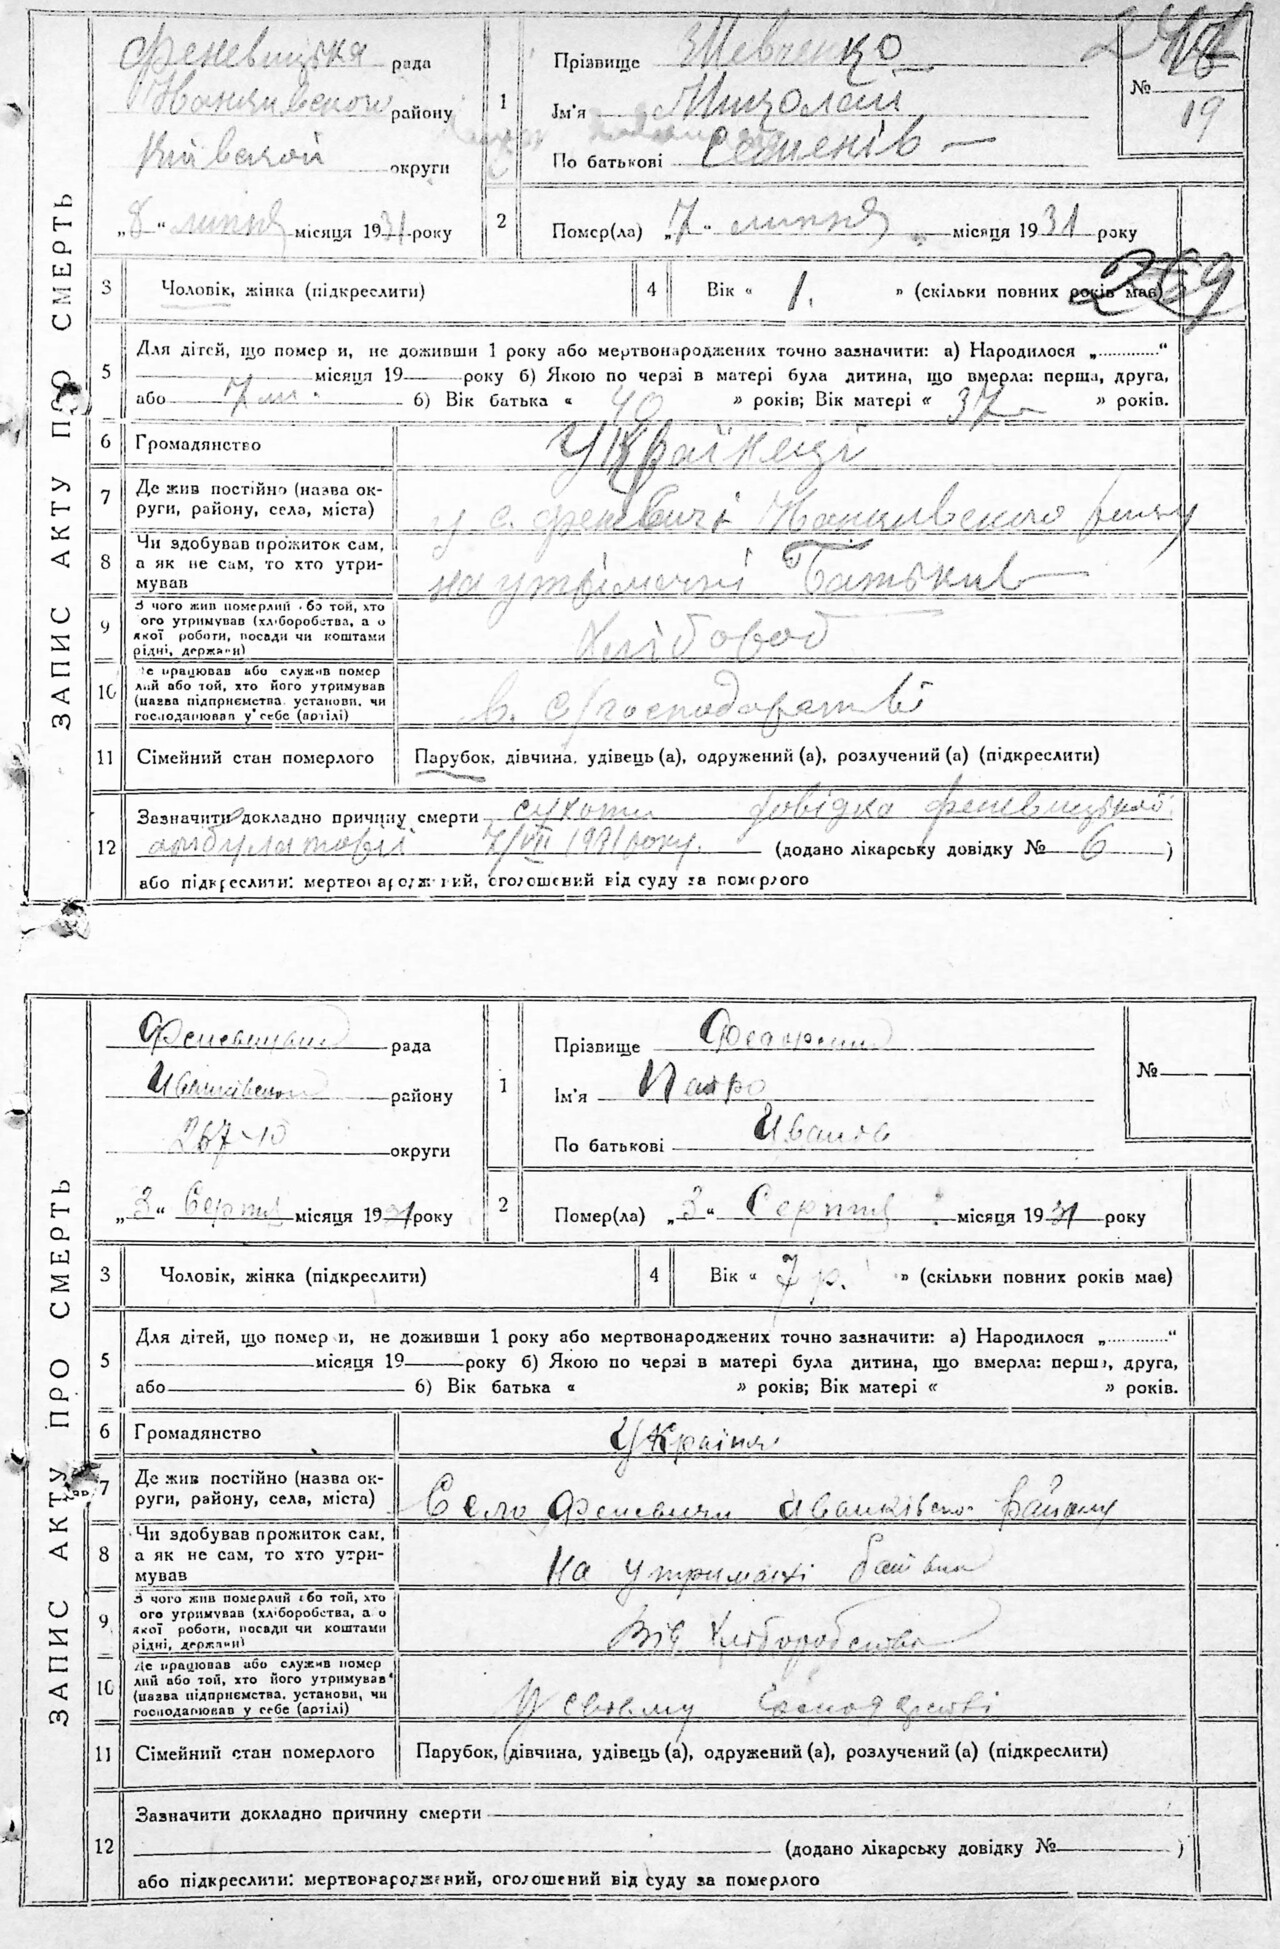 ЗАПИС АКТУ ПРО СМЕРТЬ
Феневицька рада
району
Київской округи
„8“ липня місяця 1931 року
1
Прізвище Шевченко
Ім'я Миколай
По батькові Семенів
№ 19
2
Помер(ла) „7“ липня місяця 1931 року
3 Чоловік, жінка (підкреслити)
4 Вік « 1. » (скільки повних років має)
269
5 Для дітей, що померли, не доживши 1 року або мертвонароджених точно зазначити: а) Народилося „............“
місяця 19 року б) Якою по черзі в матері була дитина, що вмерла: перша, друга,
або 7 б) Вік батька « 40 » років; Вік матері « 37 » років.
6 Громадянство Українці
7 Де жив постійно (назва ок-
руги, району, села, міста) у с. Феневичі
8 Чи здобував прожиток сам,
а як не сам, то хто утри-
мував на утриманні Батьків
9 З чого жив померлий або той, хто
ого утримував (хліборобства, а о
якої роботи, посади чи коштами
рідні, держави) Хлібороб
10 Де працював або служив помер
лий або той, хто його утримував
(назва підприємства, установи, чи
господарював у себе (артілі) в с/господарстві
11 Сімейний стан померлого Парубок, дівчина, удівець (а), одружений (а), розлучений (а) (підкреслити)
12 Зазначити докладно причину смерти сухоти довідка Феневицької
амбулаторії 7/VII 1931 року. (додано лікарську довідку № 6 )
або підкреслити: мертвонароджений, оголошений від суду за померлого
ЗАПИС АКТУ ПРО СМЕРТЬ
рада
Иванківской району
округи
„3“ Серпня місяця 1931 року
1
Прізвище
Ім'я Петро
По батькові Иванов
№
2
Помер(ла) „3“ Серпня місяця 1931 року
3 Чоловік, жінка (підкреслити)
4 Вік « 7 р. » (скільки повних років має)
5 Для дітей, що померли, не доживши 1 року або мертвонароджених точно зазначити: а) Народилося „............“
місяця 19 року б) Якою по черзі в матері була дитина, що вмерла: перша, друга,
або б) Вік батька « » років; Вік матері « » років.
6 Громадянство
7 Де жив постійно (назва ок-
руги, району, села, міста) Село Феневичи Иванківско району
8 Чи здобував прожиток сам,
а як не сам, то хто утри-
мував На утримані
9 З чого жив померлий або той, хто
ого утримував (хліборобства, а о
якої роботи, посади чи коштами
рідні, держави) Від хліборобства
10 Де працював або служив помер
лий або той, хто його утримував
(назва підприємства, установи, чи
господарював у себе (артілі) У своему господарстві
11 Сімейний стан померлого Парубок, дівчина, удівець (а), одружений (а), розлучений (а) (підкреслити)
12 Зазначити докладно причину смерти
(додано лікарську довідку № )
або підкреслити: мертвонароджений, оголошений від суду за померлого